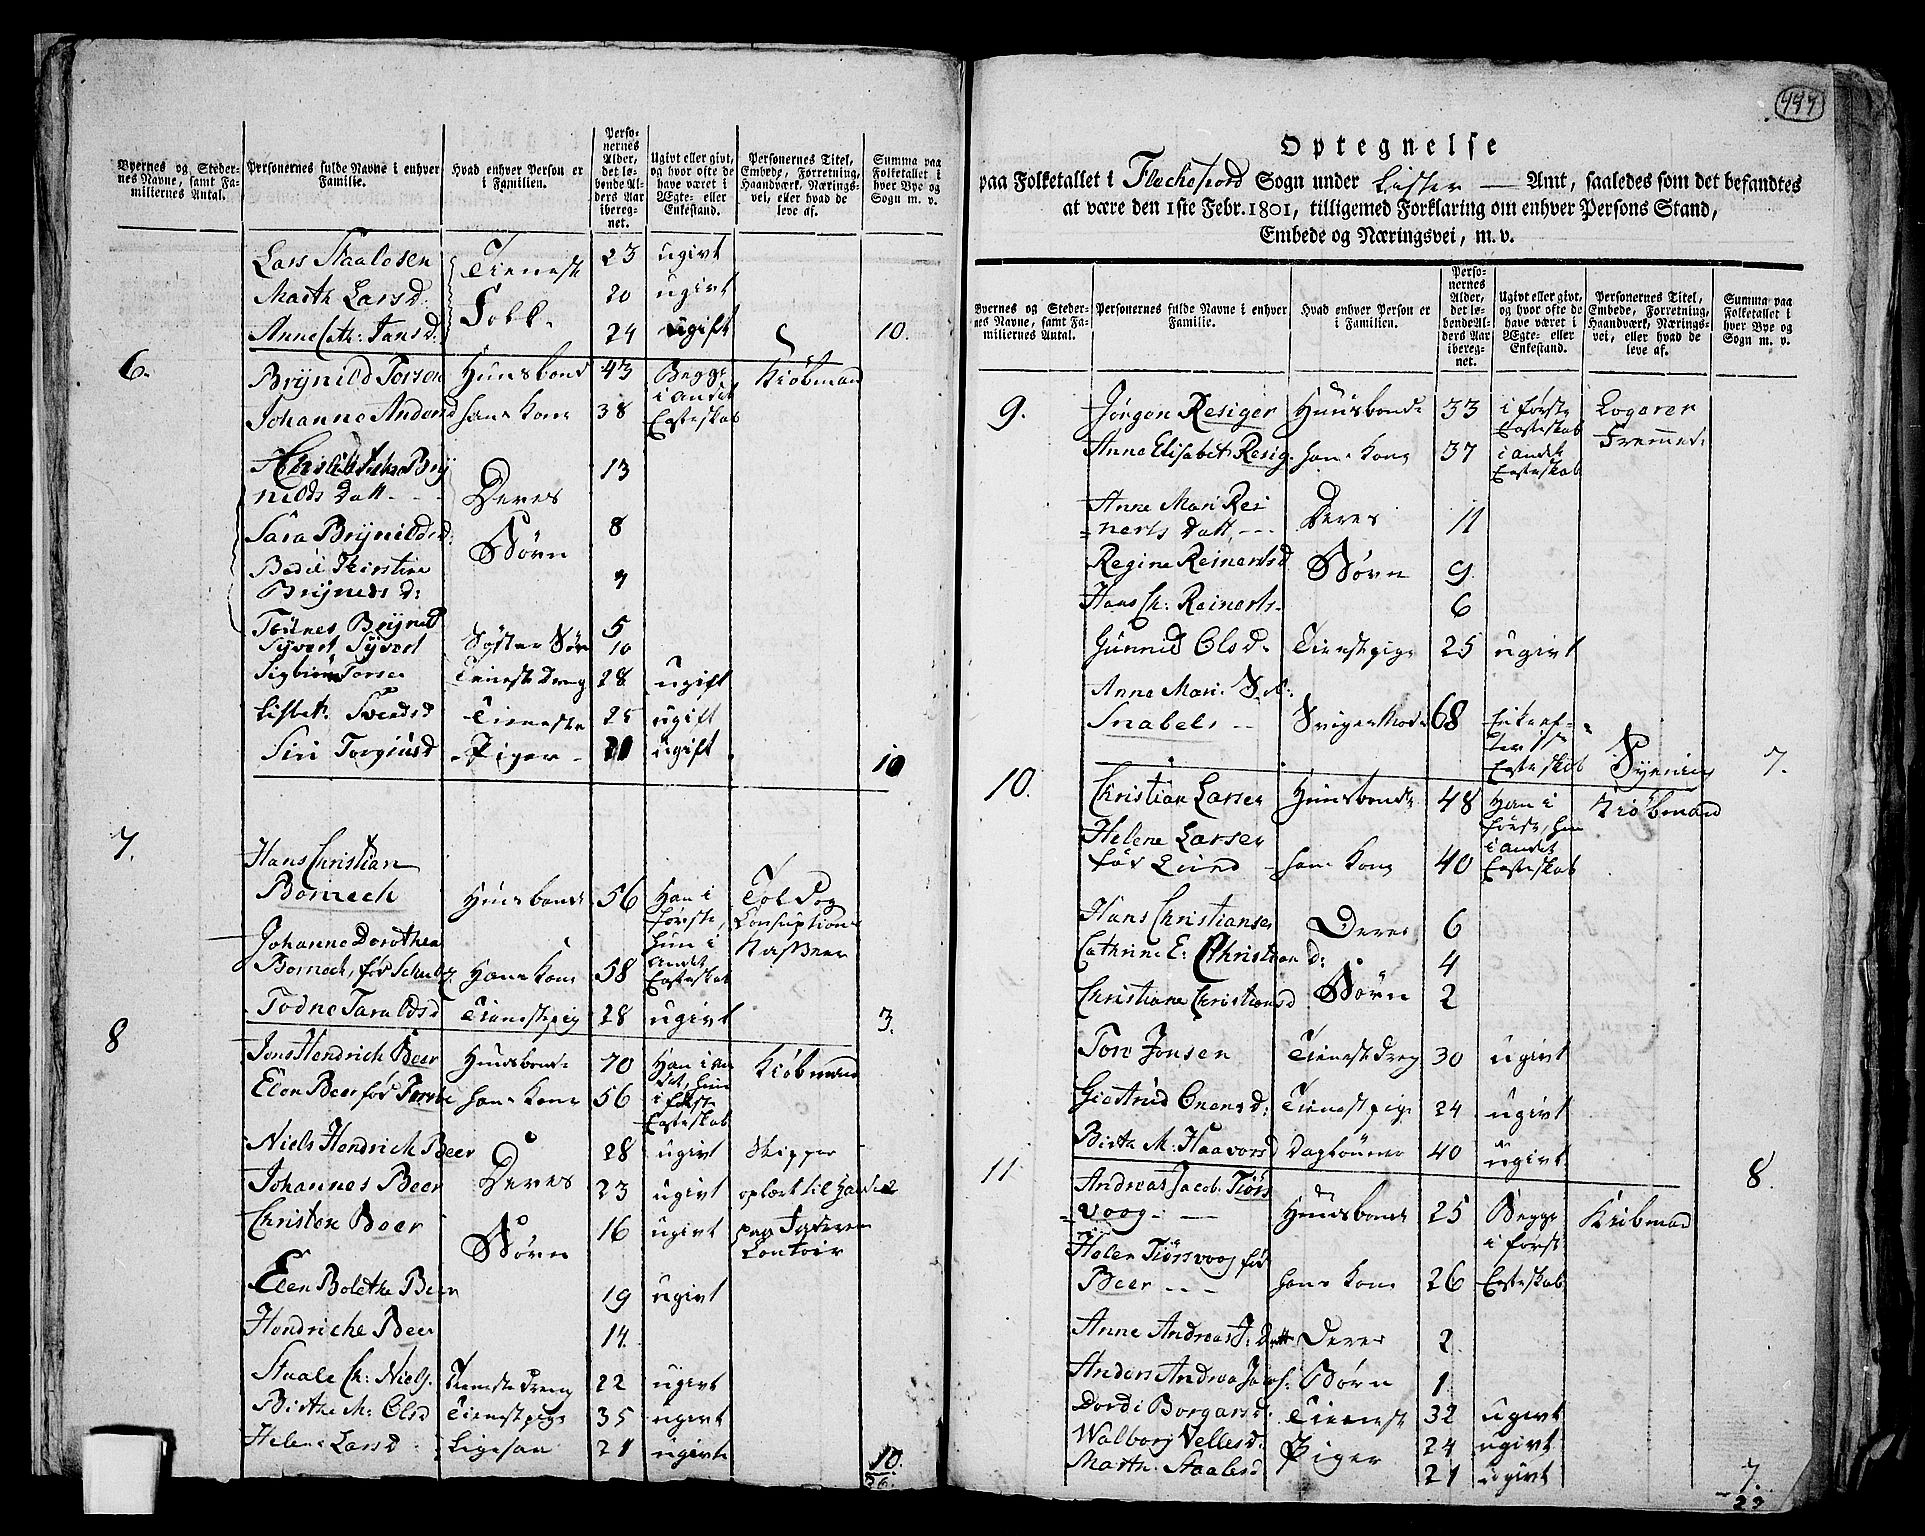 Byernes og Steder-
nes Navne, samt Fa-
miliernes Antal.
Personernes fulde Navne i enhver
Familie.
Hvad enhver Person er
i Familien.
Perso-
nernes
Alder,
det le-
bende Al-
ders Aar
ibereg-
net.
Ugivt eller givt,
og hvor ofte de
have været i
Ægte- eller
Enkestand.
Personernes Titel,
Embede, Forretning,
Haandværk, Nærings-
vei, eller hvad de
leve af.
Summa paa
Folketallet i
hver Bye og
Sogn m. v.
Lars Staalesen Tieneste 23 ugivt
Marth Larsd: Folk 20 ugivt
Anne Cath: Jansd. 24 ugift 10.
6. Brÿnild Torsen Huusbond 43 Begge Kiøbmand
i andet
Johanne Andersd hans Kone 38 Egteskab
Brÿ 13
nilds Datt - - Deres
Sara Brÿnildsd: Børn 8
Bodil Kirstine 7
Brÿnilds d:
Tønnes Brÿnild 5
Syvert Syvert Søster Søn 10
Sigbiørn Torsen Tieneste Dreng 28 ugift
Lisbet Svendsd Tieneste 25 ugift
Siri Torgiusd Piger 21 ugift 10
7. Hans Christian
Bornech Huusbonde 56 Han i Told og
første, Consuption
Johanne Dorothea hun i Kasseer
Bornech, fød Schultz. Hans Kone 58 andet
Egteskab
Todne Taraldsd Tienestepig 28 ugivt 3.
8 Jens Hendrich Beer Huusbonde 70 Han i an Kiøbmand
det, hun
Elen Beer fød hans Kone 56 i første
Egteskab
Niels Hendrich Beer 28 ugivt Skipper
Johannes Beer Deres 23 ugivt oplært til Handel
Christen Beer 16 ugivt paa Faderens
Børn Contoir
Elen Bolethe Beer 19 ugivt
Hendriche Beer 14.
Staale Ch: Niels. Tieneste Dreng 22 ugivt
Birthe M: Olsd Tienestpige 35 ugivt
Helene Larsd: Ligesaa 21 ugivt 10.
36.
447
Optegnelse
paa Folketallet i Flechefiord Sogn under Lister — Amt, saaledes som det befandtes
at være den 1ste Febr. 1801, tilligemed Forklaring om enhver Persons Stand,
Embede og Næringsvei, m. v.
Byernes og Steder-
nes Navne, samt Fa-
miliernes Antal.
Personernes fulde Navne i enhver
Familie.
Hvad enhver Person er
i Familien.
Perso-
nernes
Alder,
det le-
bende Al-
ders Aar
ibereg-
net.
Ugivt eller givt,
og hvor ofte de
have været i
Ægte- eller
Enkestand.
Personernes Titel,
Embede, Forretning,
Haandværk, Nærings-
vei, eller hvad de
leve af.
Summa paa
Folketallet i
hver Bye og
Sogn m. v.
9. Jørgen Resiger Huusbonde 33 i første Logerer
Egteskab Fremmede
Anne Elisabet Resig. hans Kone 37 i andet
Egteskab
Anne Mari Rei
=nerts Datt - - Deres 11
Regine Reinertsd Børn 9
Hans Ch: Reinerts. 6
Gunnild Olsd. Tienestpige 25 ugivt
Anne Mari
Snabels - - Sviger Moder 68 Enke ef-
ter 1ste
Egteskab 7.
10. Christian Larsen Huusbonde 48 Han i Kiøbmand
første, hun
Helene Larsen i andet
fød Lund hans Kone 40 Egteskab
Hans Christiansen Deres 6
Cathrine E: Christian d: 4
Christiane Christiansd Børn 2
Tore Jonsen Tieneste Dreng 30 ugivt
Giertrud Onensd: Tienestpige 24 ugivt
Birthe M: Haavorsd Daglønner 40 ugivt 8.
11. Andreas Jacob Tiørs
=voog - — Huusbonde 25 Begge Kiøbmand
i første
Helen Tiørsvoog fød
Beer - - - hans Kone 26 Egteskab
Anne Andreas J: Datt Deres 2
Anders Andreas Jacobs: Børn 1
Dordi Borgarsd. Tieneste 32 ugivt
Walborg Vellesd. Piger 24 ugivt
Marth. Staalesd 21 ugivt 7.
22